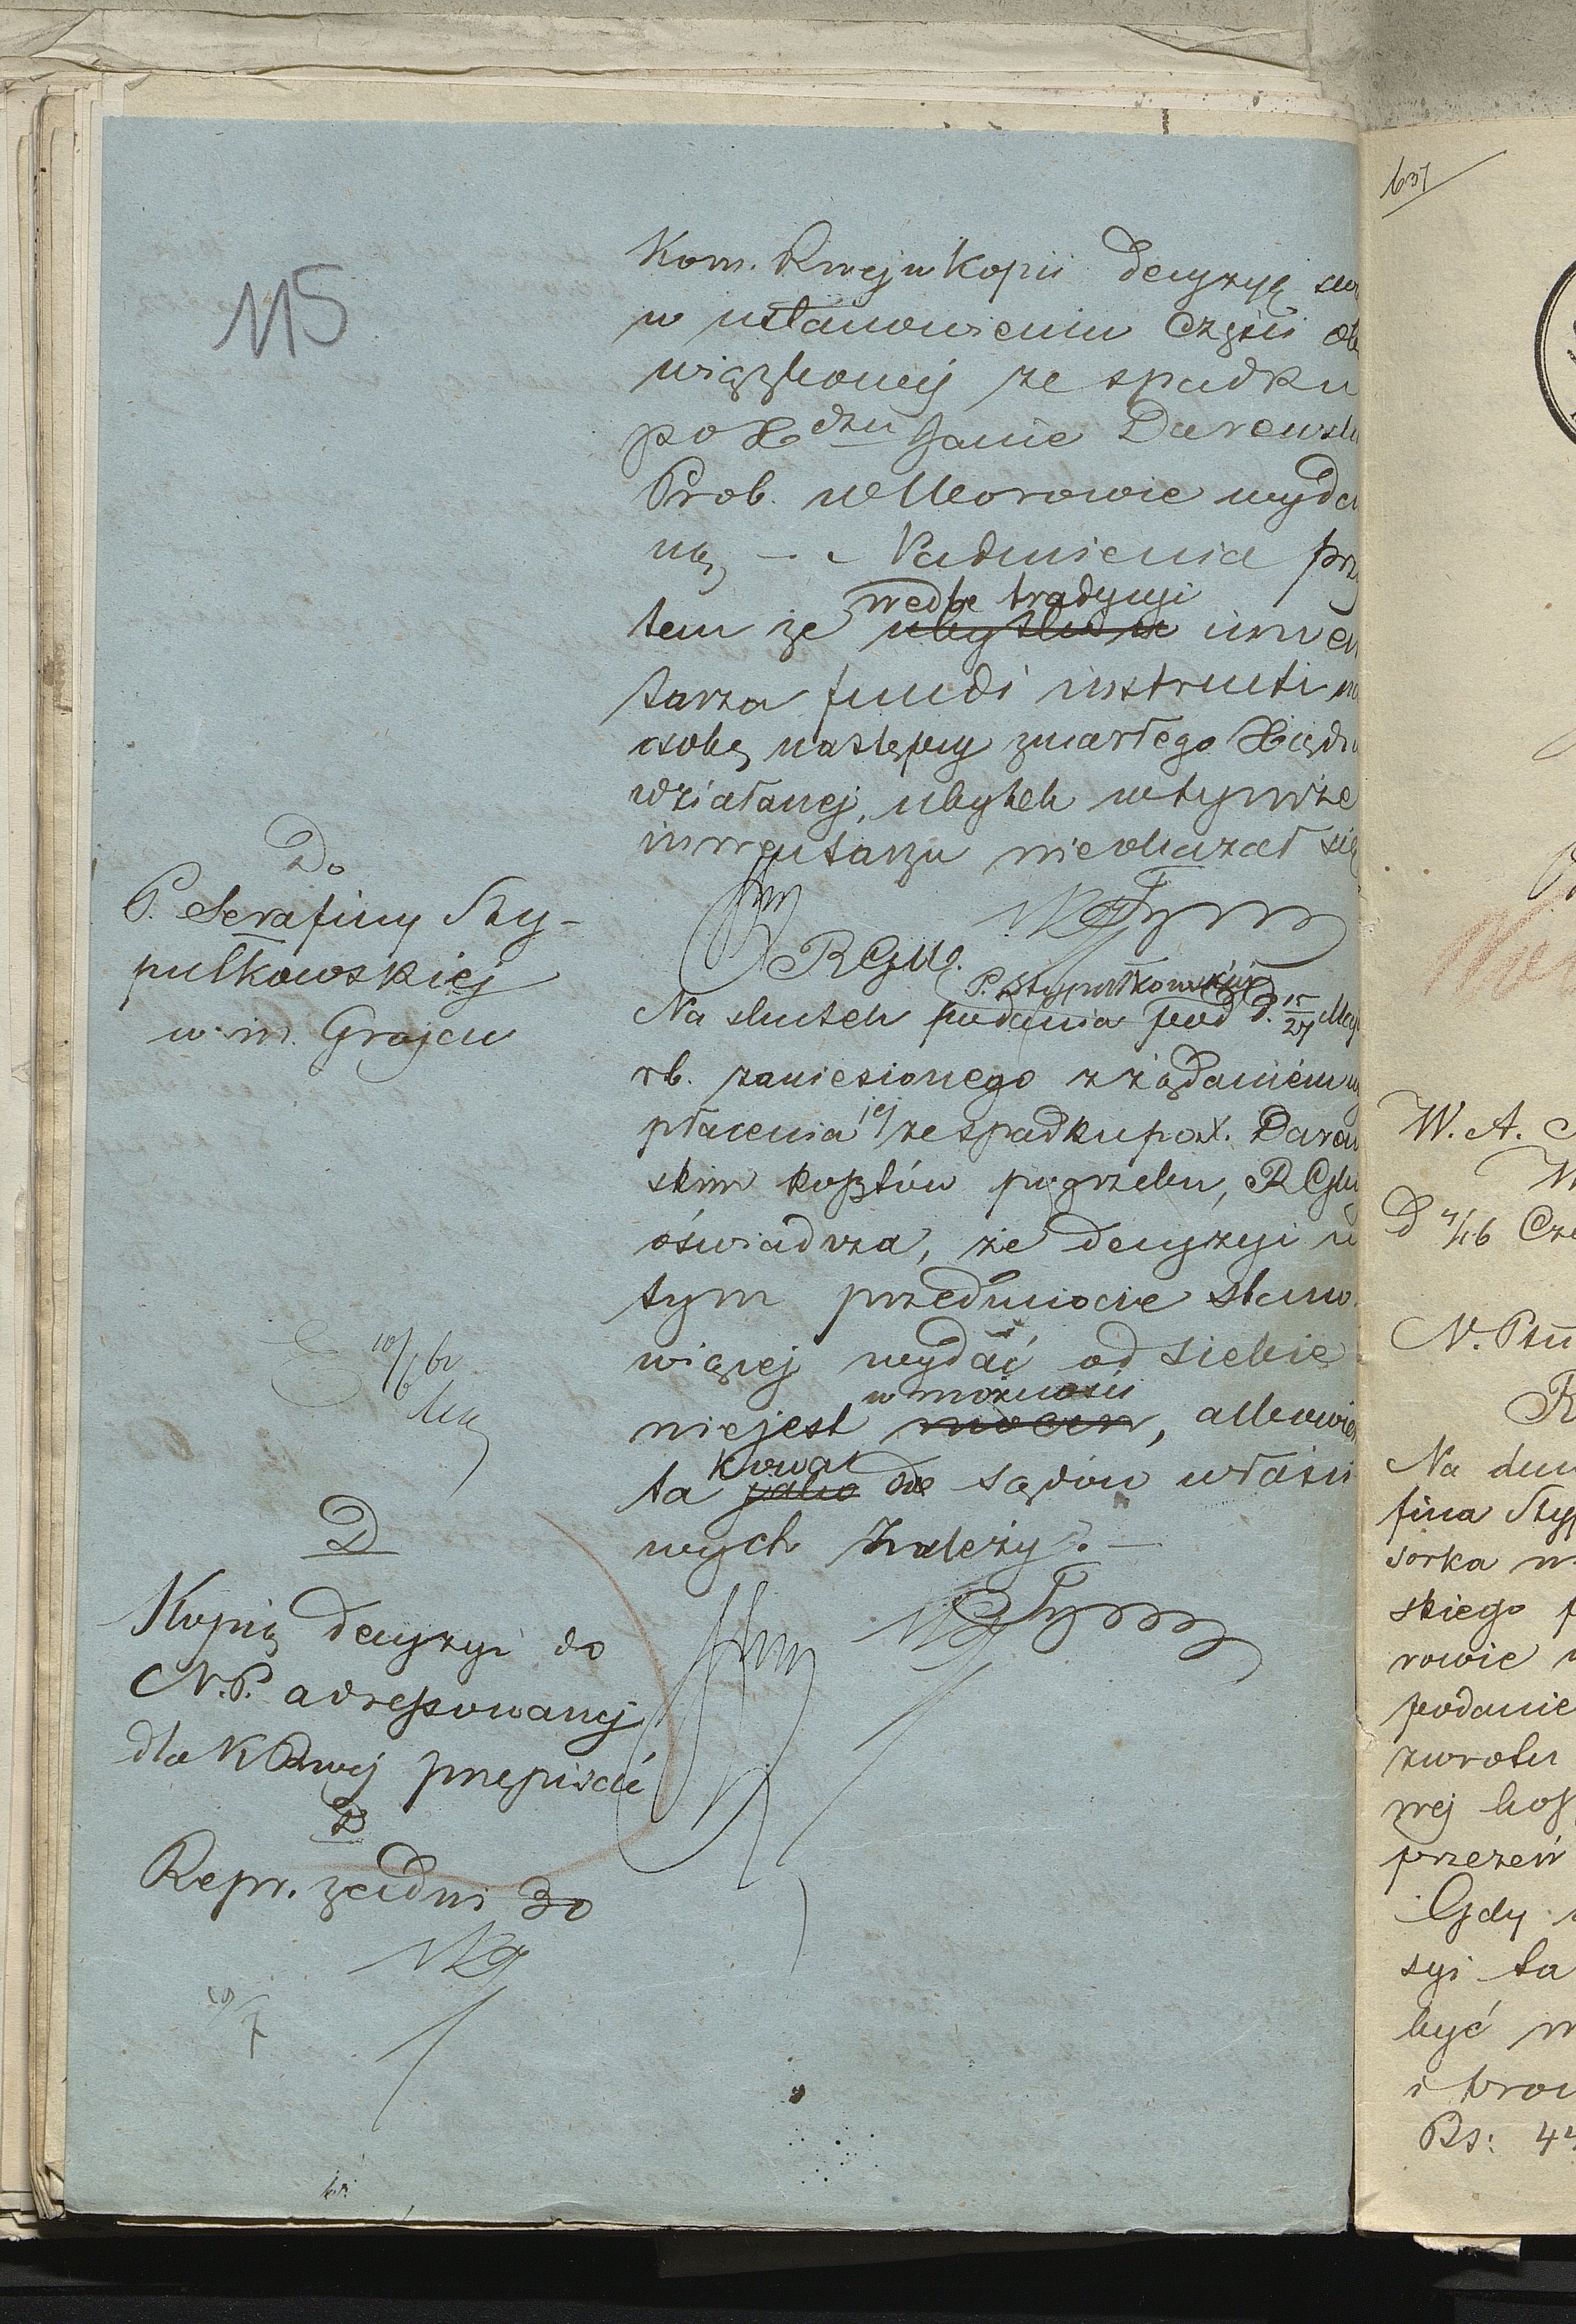 115
Kom. Rwej w kopii decyzyą
w ustanowieniu Części ob
wiązkowej ze spadku
po Xdzu Janie Darewsk
Prob. w Worowie wyda
ną — Nadmienia prz
tem że wedle tradycyi ubytku w inwen
tarza fundi instructi na
osobę następcy zmarłego Xiędza
zdziałanej, ubytek w tymże
inwentarzu nieokazał się
Do
P. Serafiny Sty-
pułkowskiej
w m. Grójcu
RGW.
P. Stypułkowskiej
Na skutek podania pod d. 15/27 Maja
rb. zaniesionego z żądaniem wy
płacenia jej ze spadku po X. Darew
skim kosztów pogrzebu, RGW
oświadcza, że decyzyi w
tym przedmiocie stano-
wiącej wydać od siebie
niejest w możności mocen, albowiem
ta kowa jako do sądów właści
wych należy. —
E 10/6
D
Kopią decyzyi do
N.P. adressowanej
dla K Rwej przepisać
D
Repr. za dni 30
637
W. A.
D 4/16 Cze
N. Psu
R
Na
fina Styp
sorka w
skiego p
rowie w
podanie
zwrotu
wej kosz
przezeń
Gdy
syi ta
być m
i
Rs: 44